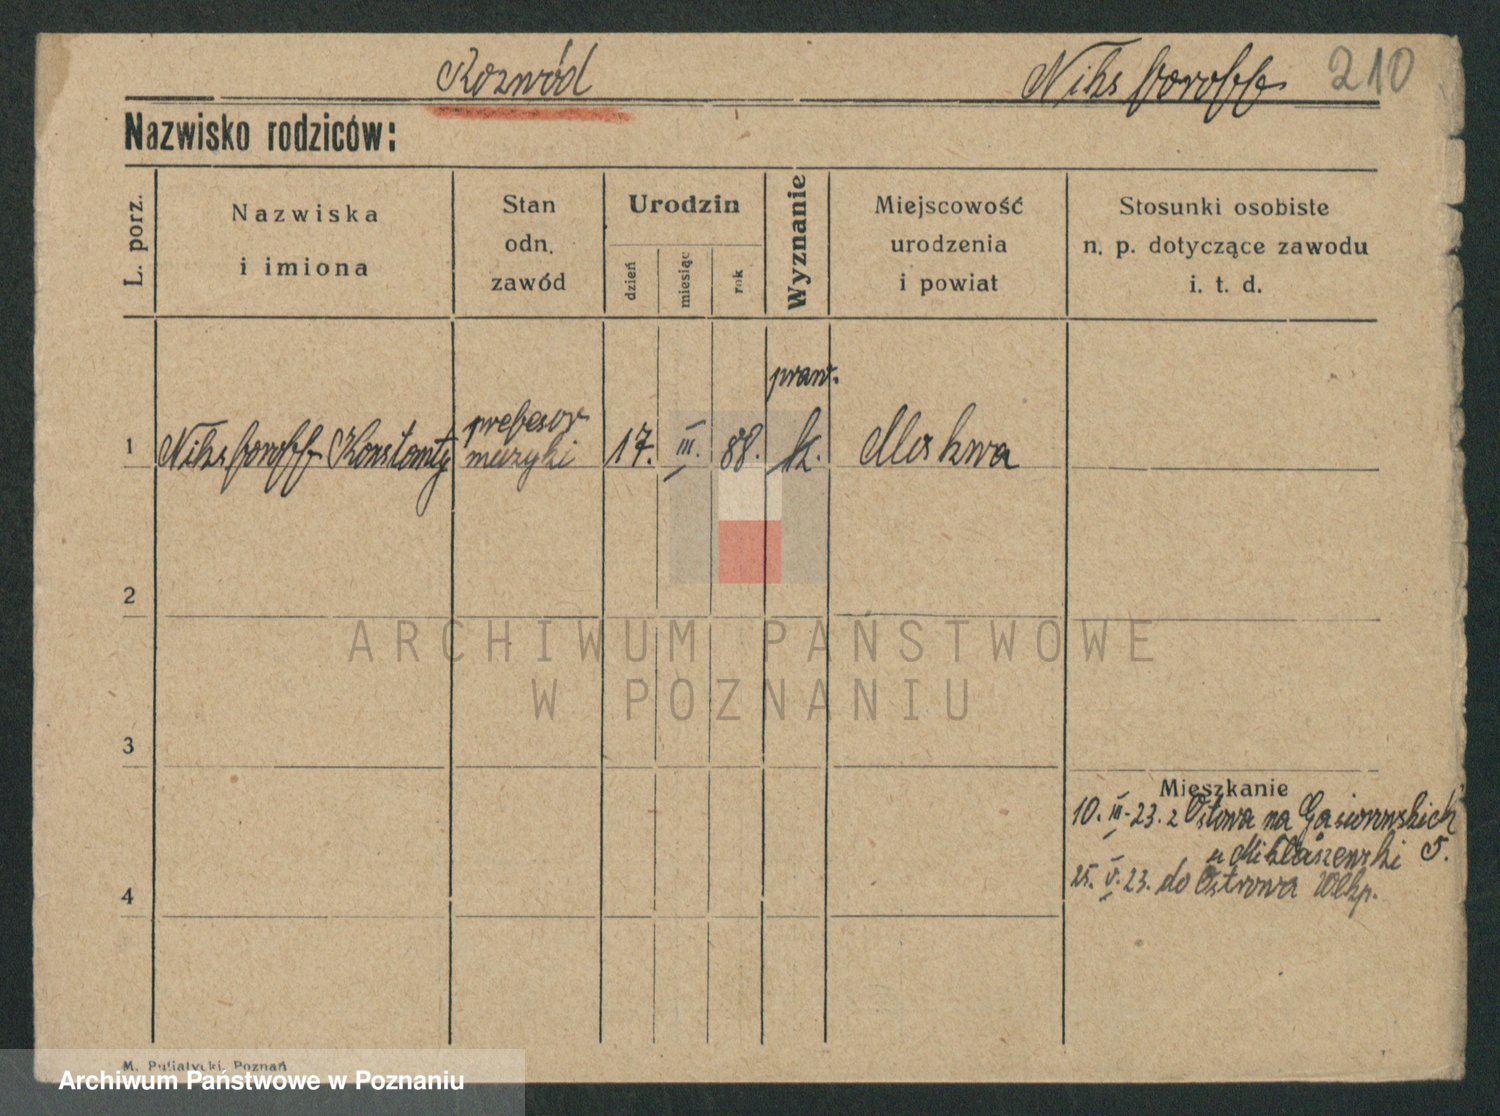 Rozwód
Niksboroff 210
Nazwisko rodziców:
L. porz.
Nazwiska
i imiona
Stan
odn.
zawód
Urodzin
dzień
miesiąc
rok
Wyznanie
Miejscowość
urodzenia
i powiat
Stosunki osobiste
n. p. dotyczące zawodu
i. t. d.
praw.
profesor
1 Niksboroff Konstanty muzyki 17. III. 88. k. Moskwa
2
ARCHIWUM PAŃSTWOWE
W POZNANIU
3
Mieszkanie
10. III. 23. z na Gąsiorowskich
u Miklaszewski 5.
25. V. 23. do Ostrowa Wlkp.
4
M. Putiatycki, Poznań
Archiwum Państwowe w Poznaniu